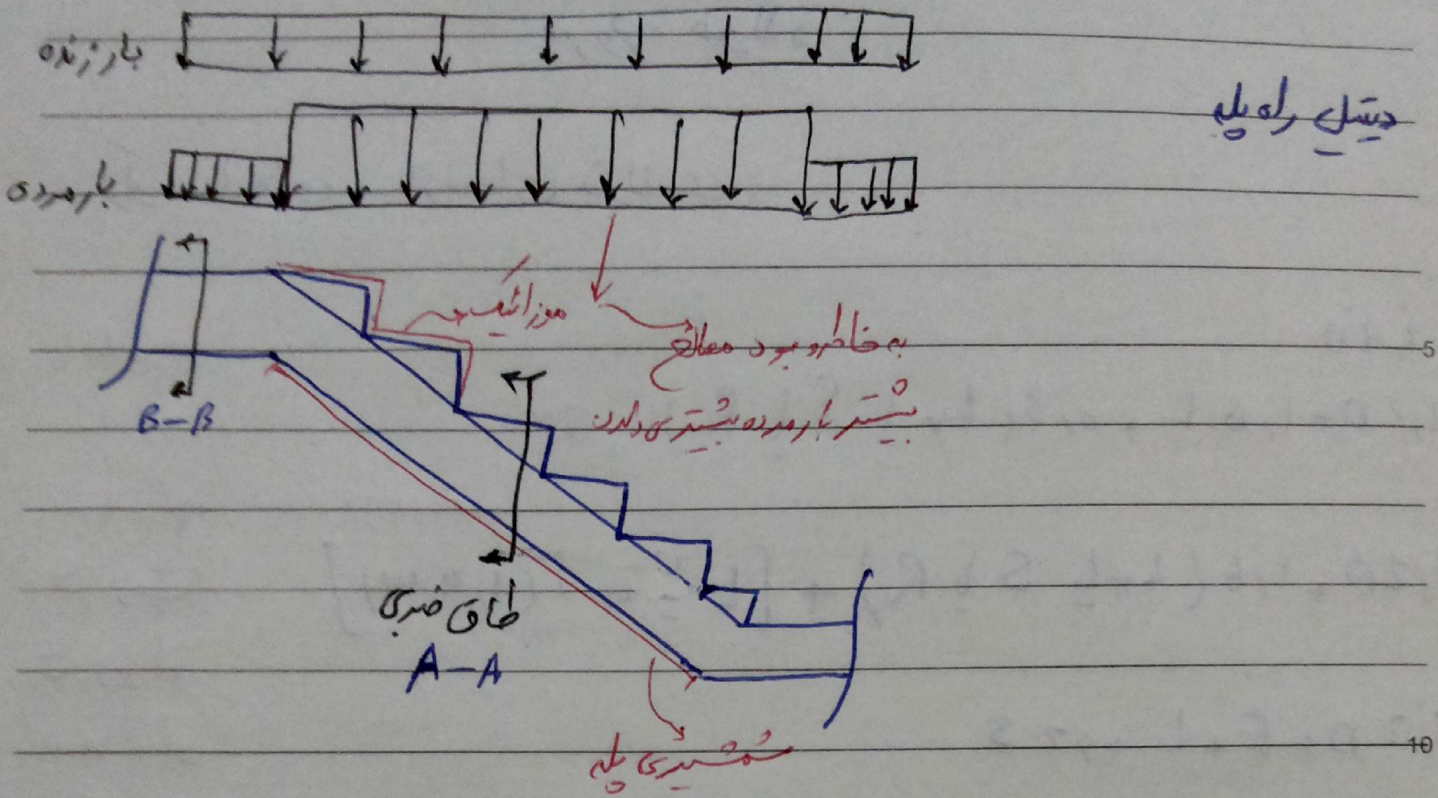 بار زنده
دیتیل راه پله
بار مرده
موزائیک
به خاطر وجود مصالح
بیشتر بار مرده بیشتری دارن
B-B
طاق ضربی
A-A
شمشیری پله
5
10